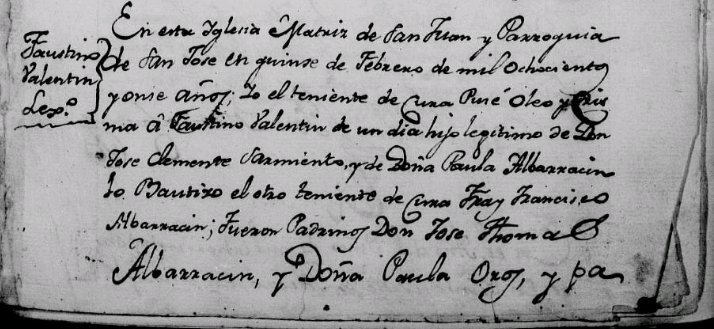 Faustino
Valentin
Lexo.
En esta Iglesia Matriz de San Juan y Parroquia
de San Jose en quinse de Febrero de mil Ochociento
y onse años; Yo el teniente de Cura Pusé Oleo y Cris
ma â Faustino Valentin de un dia hijo legitimo de Don
Jose Clemente Sarmiento, y de Doña Paula Albarracin
lo Bautizo el otro teniente de Cura Fray Francisco
Albarracin; Fueron Padrinos Don Jose Thomas
Albarracin, y Doña Paula Oros, y pa